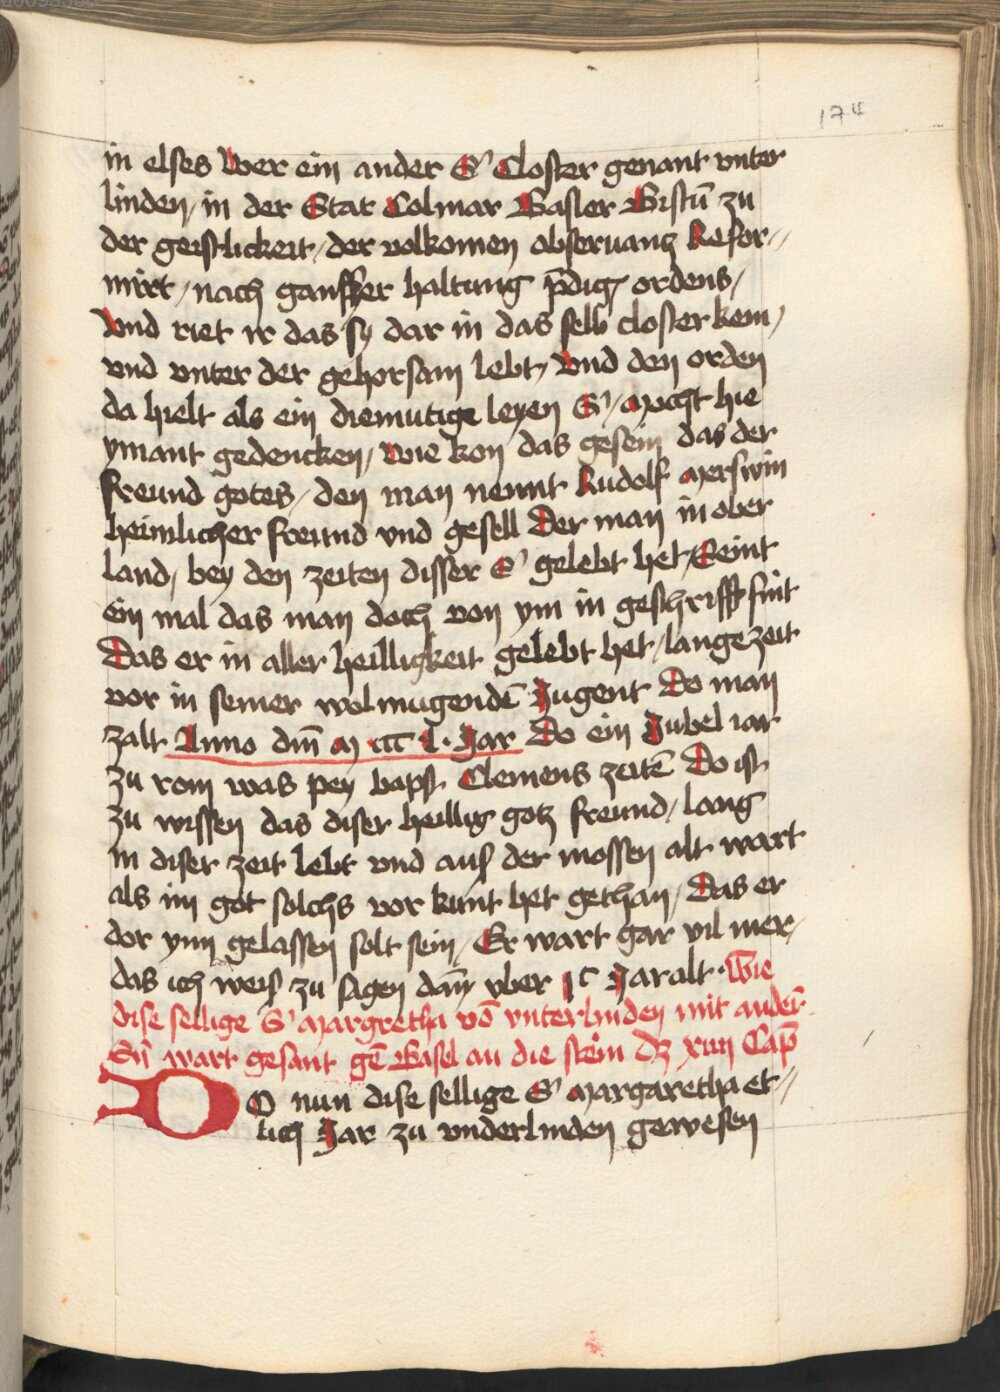 174
in elses Wer ein ander S' Closter genant vnter
linden, in der Stat Colmar Basler Bistū zu
der geistlickeit / der volkomen obseruantz Refor-
mirt / nach gantzer haltung p̄dig ordens /
Vnd riet ir das sy dar in das selb closter kem /
vnd vnter der gehorsam lebt / Vnd den orden
da hielt als ein diemutige leyen S' / Mocht hie
ymant gedencken / wie kon das gesein das der
freund gotes / den man nennt Rudolf Merswin
heimlicher freund vnd gesell Der man in ober
land / bey den zeiten disser S' gelebt het / Seint
ein mal das man doch von ym in geschrifft fint
Das er in aller heilligkeit gelebt het / lange zeit
vor in seiner wolmugendē Jugent Do man
zalt Anno dm̄ M ccc L · Jar Do ein Jubel iar
zu rom was pey bapst Clemens zeitē Do ist
zu wissen das diser heillig gotz freund / lang
in diser zeit lebt vnd auß der mossen alt wart
als im got solchs vor kunt het gethan / Das er
dor ynn gelassen solt sein / Er wart gar vil mer /
das ich weiß zu sagen dān vber jc Jar alt · Wie
dise sellige S' Margretha vō vnterlinden mit andeř
Sū wart gesant gē Basel an die stein dz xiiii Cap̄
DO nun dise sellige S' Margaretha et-
lich Jar zu vnderlinden gewesen